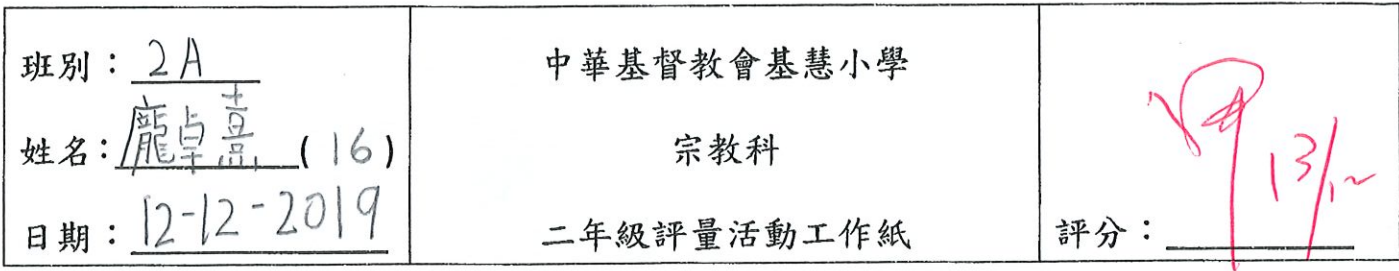 班別：2A
姓名：龐卓熹 (16)
日期：12-12-2019
中華基督教會基慧小學
宗教科
二年級評量活動工作紙
評分：
13/12